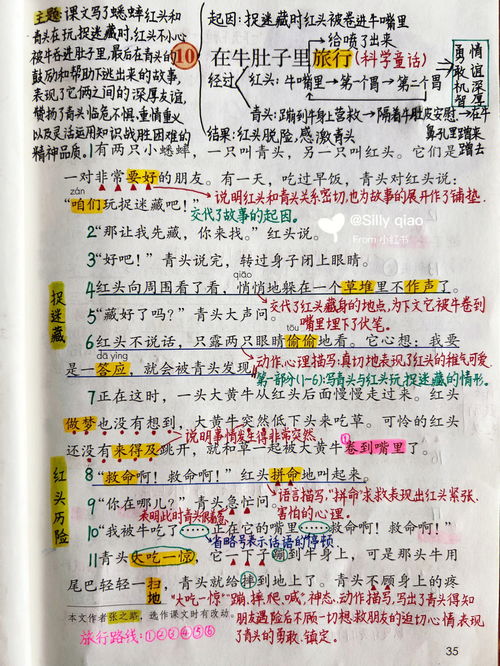 主题:课文写了蟋蟀红头和
青头在玩捉迷藏时,红头不小心
被牛吞进肚子里,最后在青头的
鼓励和帮助下逃出来的故事,
表现了它俩之间的深厚友谊,
赞扬了青头临危不惧、重情重义
以及灵活运用知识战胜困难的
精神品质。
起因:捉迷藏时红头被卷进牛嘴里
给喷了出来
10 在牛肚子里旅行(科学童话)
经过
红头:牛嘴里→第一个胃→第二个胃
青头:蹦到牛身上营救→隔着牛肚皮安慰→在牛
鼻孔里蹭来
蹭去
结果:红头脱险,感激青头
勇敢机智
情谊深厚
1有两只小蟋蟀,一只叫青头,另一只叫红头。它们是
一对非常要好的朋友。有一天,吃过早饭,青头对红头说:
说明红头和青头关系密切,也为故事的展开作了铺垫.
zán
“咱们玩捉迷藏吧!”
交代了故事的起因。
@Silly qiao
From 小红书
2“那让我先藏,你来找。”红头说。
3“好吧!”青头说完,转过身子闭上眼睛。
qiāo
4红头向周围看了看,悄悄地躲在一个草堆里不作声了。
交代了红头藏身的地点,为下文它被牛卷到
嘴里埋下了伏笔。
捉迷藏
5“藏好了吗?”青头大声问。
tōu
6红头不说话,只露两只眼睛偷偷地看。它心想:我要
dā yìng
是一答应,就会被青头发现。
动作、心理描写:真切地表现了红头的稚气可爱.
第一部分(1-6):写青头与红头玩捉迷藏的情形。
7正在这时,一头大黄牛从红头后面慢慢走过来。红头
做梦也没有想到,大黄牛突然低下头来吃草。可怜的红头
说明事情发生得非常突然.
还没有来得及跳开,就和草一起被大黄牛卷到嘴里了。
①
红头历险
8“救命啊!救命啊!”红头拼命地叫起来。
语言描写,“拼命”求救表现出红头紧张、
害怕的心理。
9“你在哪儿?”青头急忙问。
表明此时青头很着急
10“我被牛吃了……正在它的嘴里……救命啊!救命啊!”
省略号表示话语的停顿
11青头大吃一惊,它一下子蹦到牛身上,可是那头牛用
尾巴轻轻一扫,青头就给摔到地上了。青头不顾身上的疼
地
“大吃一惊”“蹦、摔、爬、喊”,神态、动作描写,写出了青头得知
朋友遇险后不顾一切想救朋友的迫切心情,表现
了青头的勇敢、镇定。
本文作者张之路,选作课文时有改动。
旅行路线:①②③④⑤⑥
35